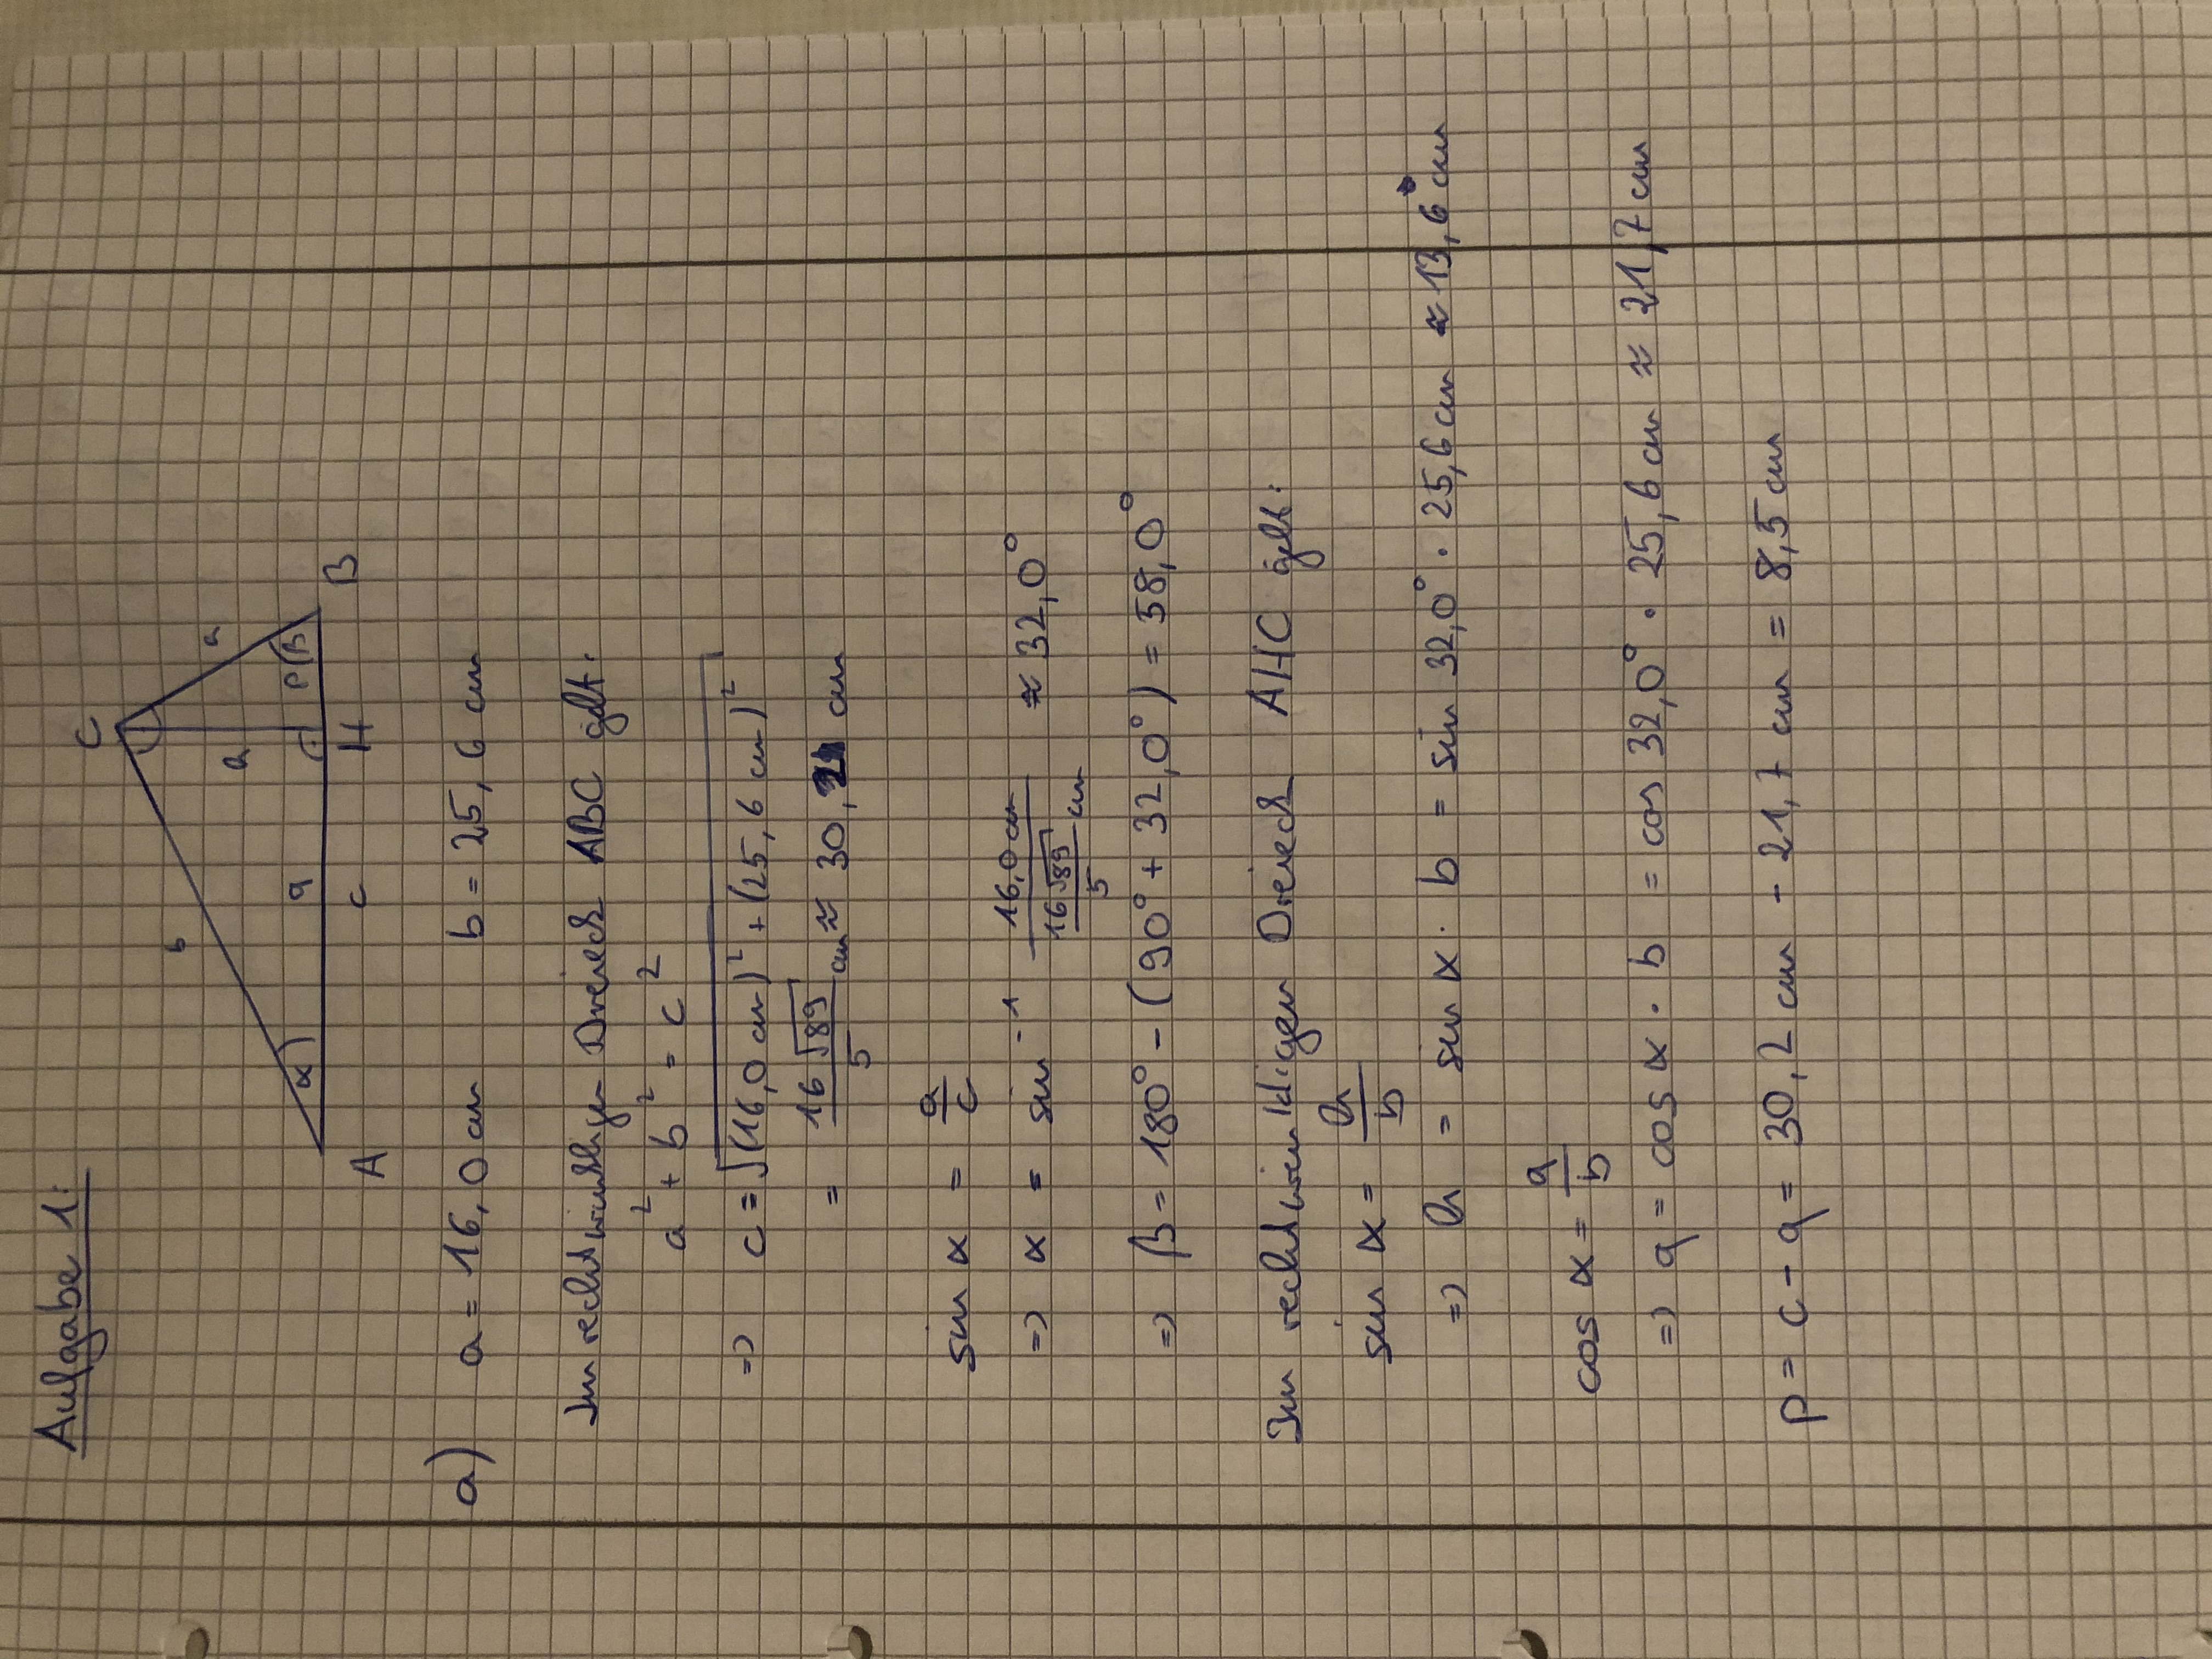 Aufgabe 1:
C
b
a
h
α
q
p
β
A
c
H
B
a) a = 16,0 cm b = 25,6 cm
Im rechtwinkligen Dreieck ABC gilt:
a² + b² = c²
=> c = √((16,0 cm)² + (25,6 cm)²)
= 16√89/5 cm ≈ 30,2 cm
sin α = a/c
=> α = sin⁻¹ 16,0 cm/(16√89/5 cm) ≈ 32,0°
=> β = 180° - (90° + 32,0°) = 58,0°
Im rechtwinkligen Dreieck AHC gilt:
sin α = h/b
=> h = sin α · b = sin 32,0° · 25,6 cm ≈ 13,6 cm
cos α = q/b
=> q = cos α · b = cos 32,0° · 25,6 cm ≈ 21,7 cm
p = c - q = 30,2 cm - 21,7 cm = 8,5 cm